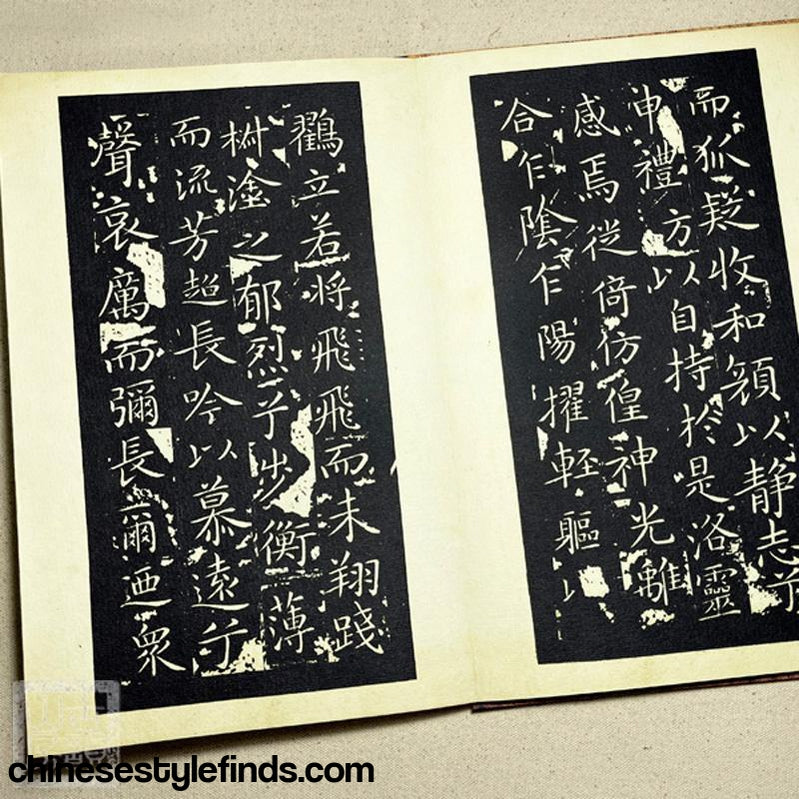 而狐疑收和顔以静志兮
申禮方以自持於是洛靈
感焉徙倚仿偟神光離
合乍陰乍陽擢輕軀以
鸖立若將飛飛而未翔踐
椒塗之郁烈兮步衡薄
而流芳超長吟以慕遠兮
聲哀厲而彌長爾迺衆
chinesestylefinds.com